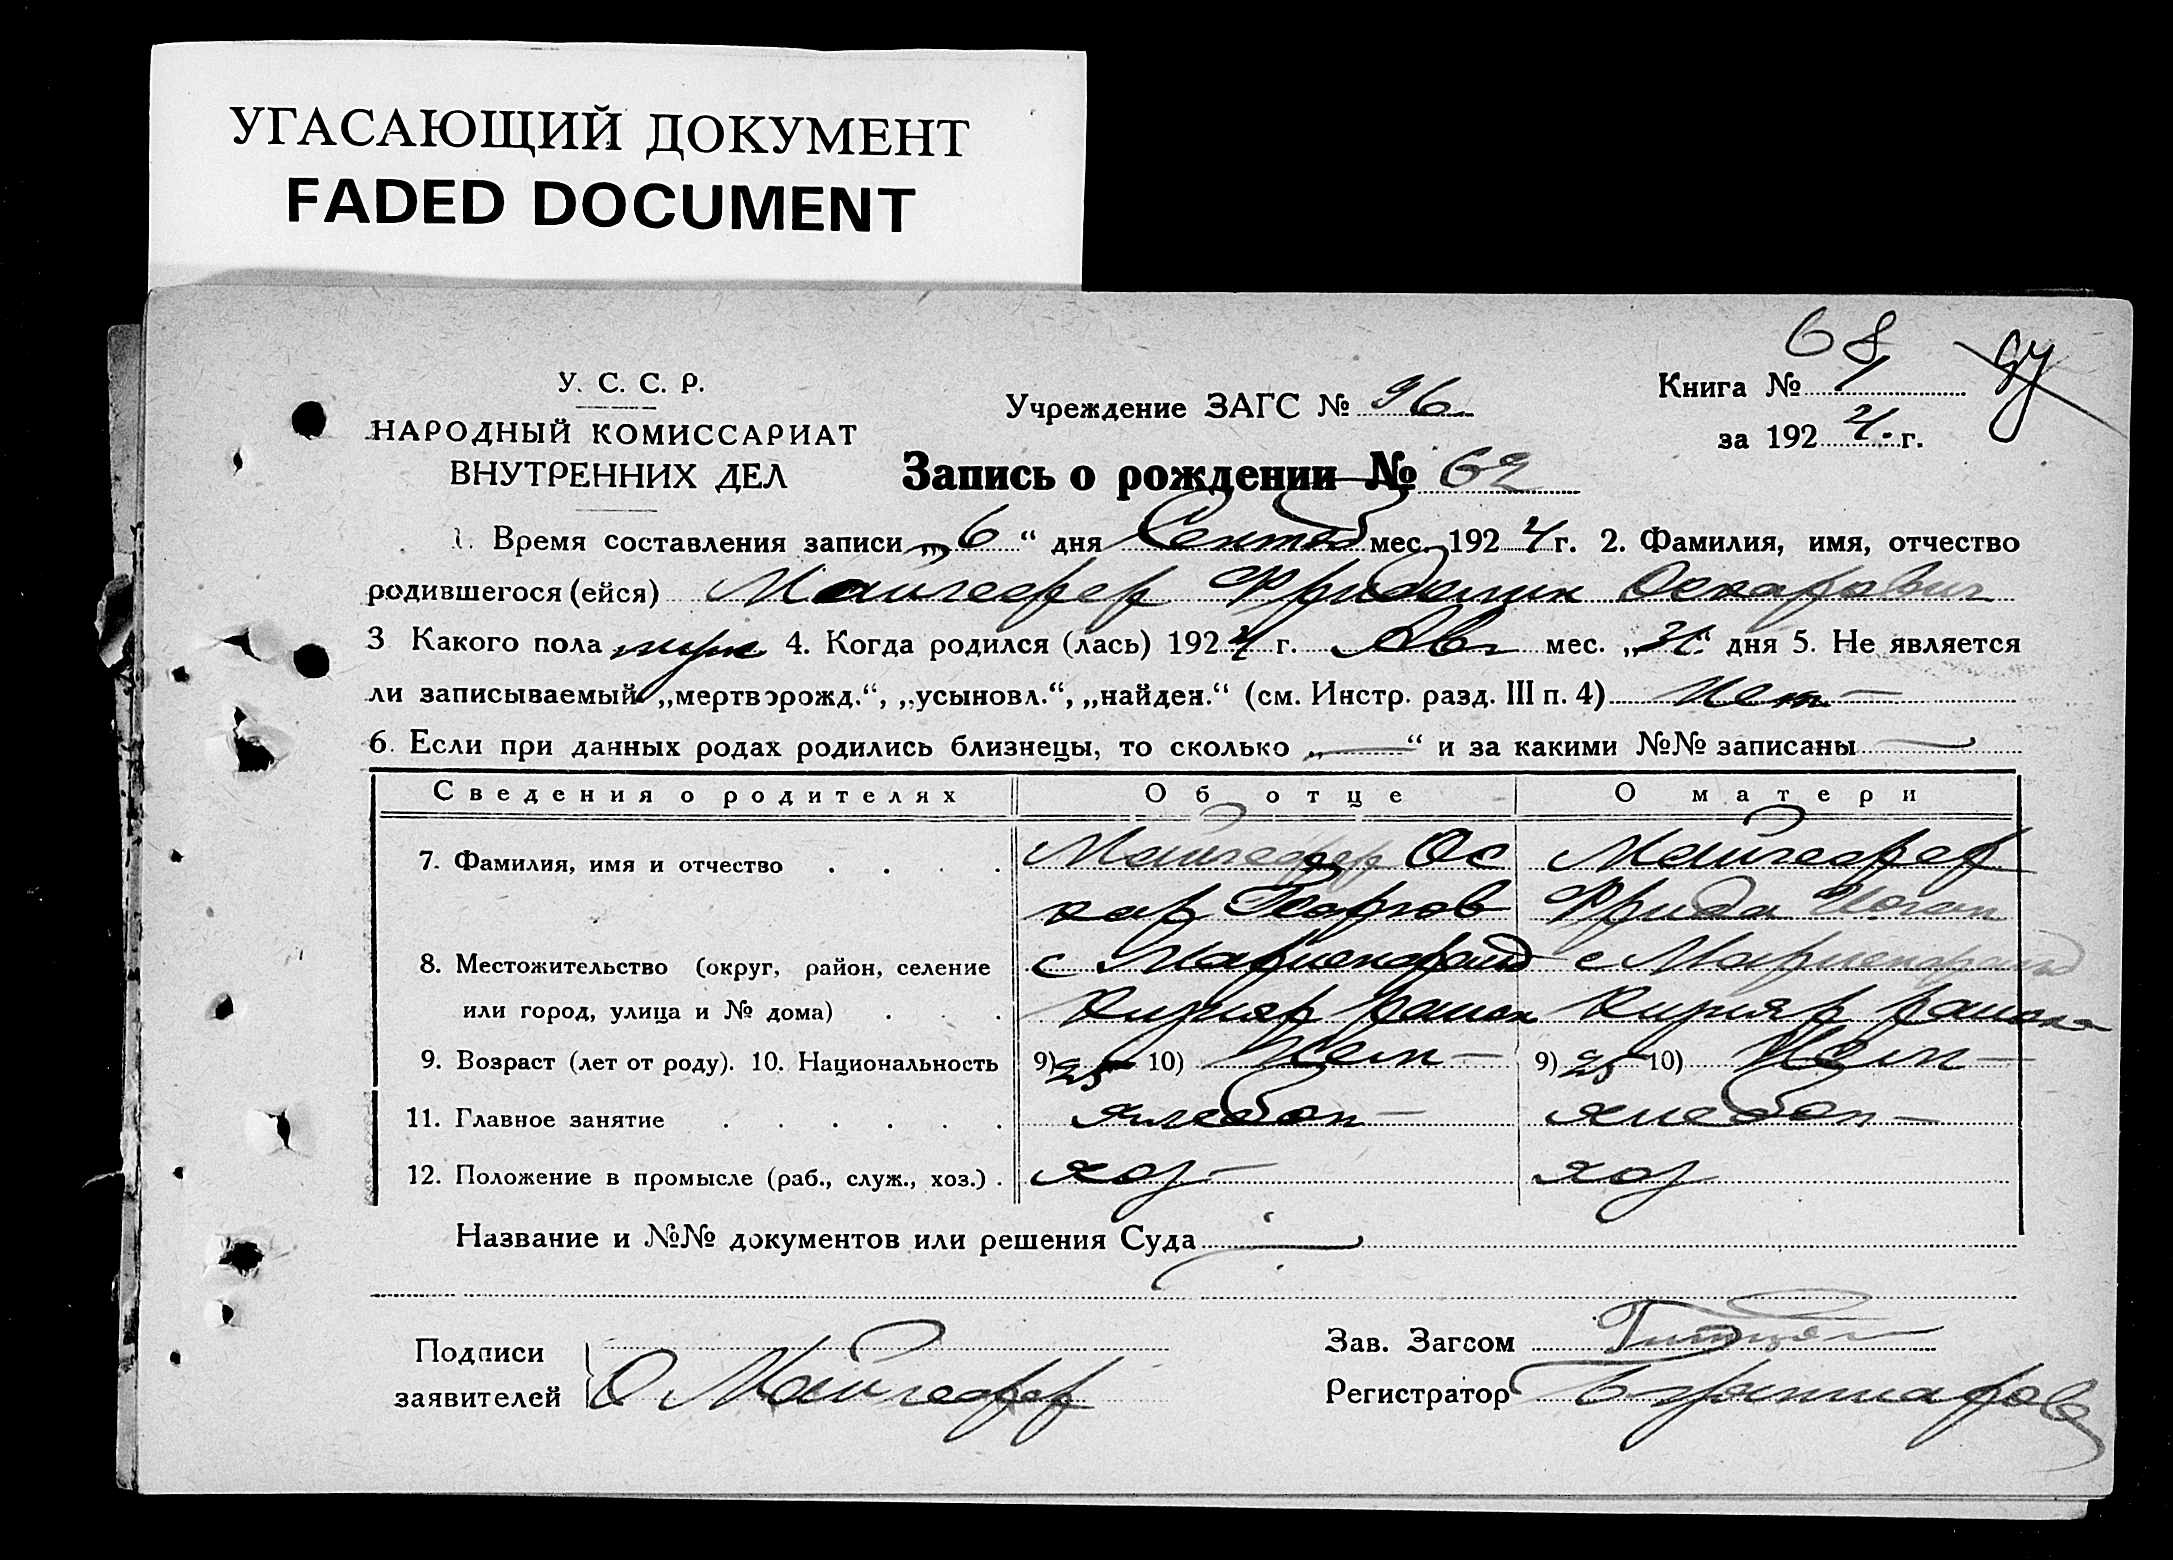 УГАСАЮЩИЙ ДОКУМЕНТ
FADED DOCUMENT
68
У. С. С. Р.
НАРОДНЫЙ КОМИССАРИАТ
ВНУТРЕННИХ ДЕЛ
Учреждение ЗАГС № 96
Книга № 1
за 1924 г.
Запись о рождении № 62
1. Время составления записи „6“ дня Сентяб мес. 1924 г. 2. Фамилия, имя, отчество
родившегося (ейся) Майгефер Фридрих Оскарович
3 Какого пола муж 4. Когда родился (лась) 1924 г. Авг мес. „31“ дня 5. Не является
ли записываемый „мертворожд.“, „усыновл.“, „найден.“ (см. Инстр. разд. III п. 4) Нет —
6. Если при данных родах родились близнецы, то сколько „—“ и за какими №№ записаны —
Сведения о родителях Об отце О матери
7. Фамилия, имя и отчество Майгефер Ос Майгефер
кар Георгов Фрида Иоган
8. Местожительство (округ, район, селение с Мариенфельд с Мариенфельд
или город, улица и № дома) района
9. Возраст (лет от роду). 10. Национальность 9) 25 10) Нем — 9) 25 10) Нем —
11. Главное занятие хлебоп — хлебоп —
12. Положение в промысле (раб., служ., хоз.) хоз — хоз
Название и №№ документов или решения Суда —
Подписи
заявителей О Майгефер
Зав. Загсом
Регистратор